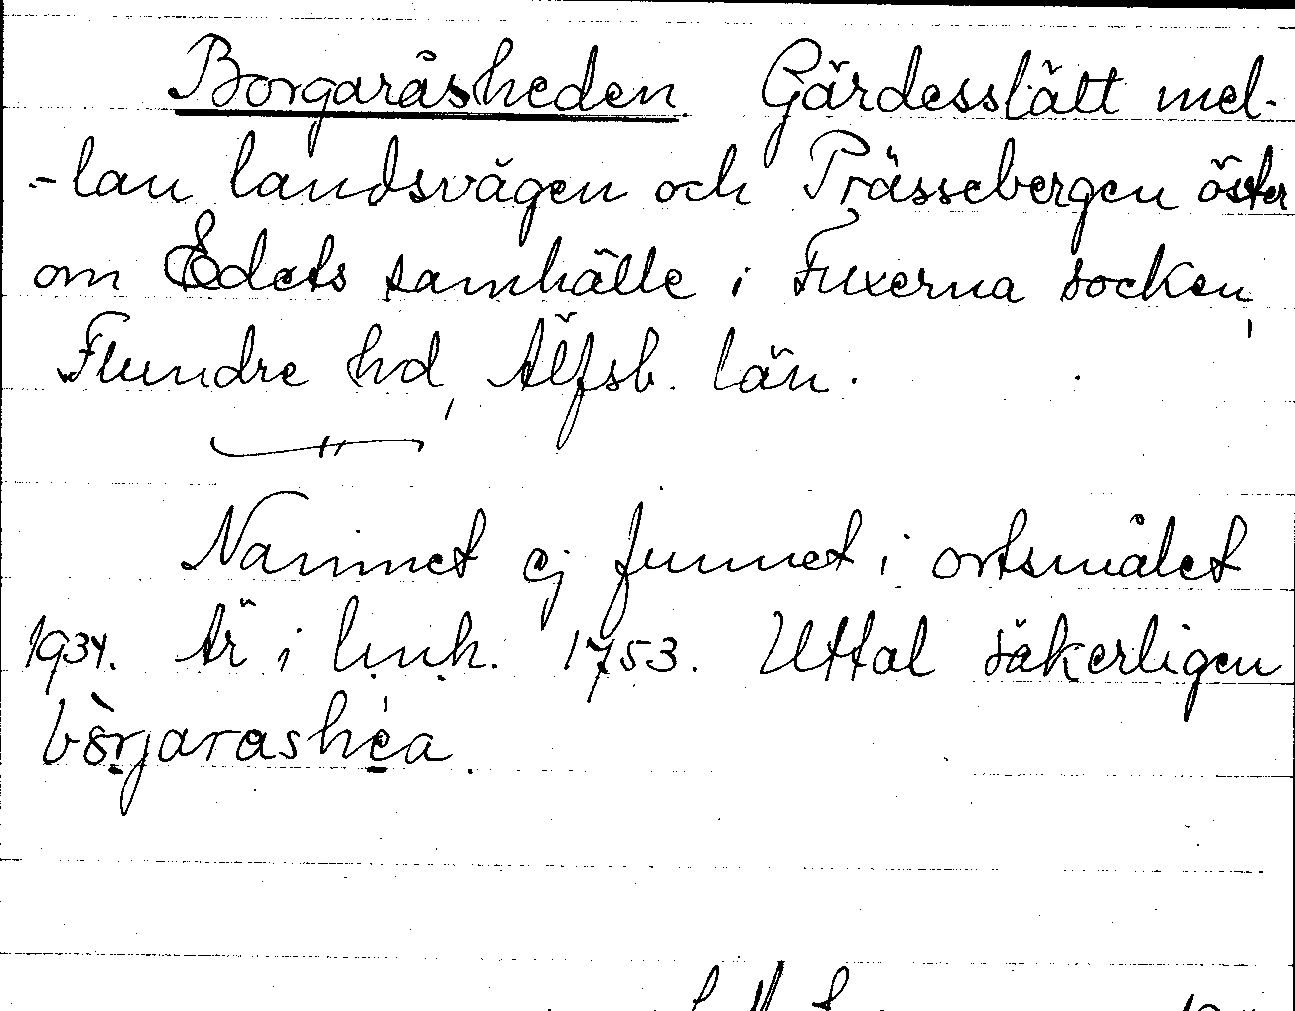 Borgaråsheden Gärdesslätt mel-
-lan landsvägen och Prässebergen öster
om Edets samhälle i Fuxerna socken,
Flundre hd, Älfsb. län.
Namnet ej funnet i ortsmålet
1934. Är i l.m.h. 1753. Uttal säkerligen
bòrjarashéa.